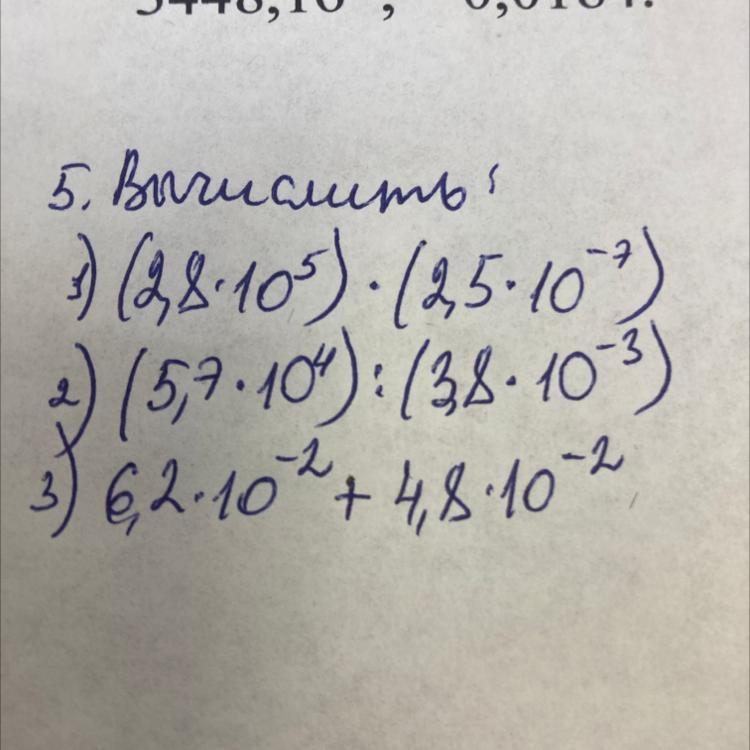 5. Вычислить:
1) (2,8·10⁵)·(2,5·10⁻⁷)
2) (5,7·10⁴):(3,8·10⁻³)
3) 6,2·10⁻² + 4,8·10⁻²